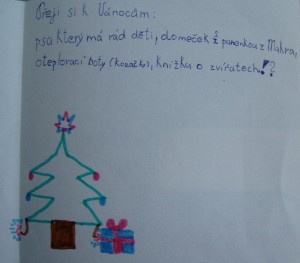 Přeji si k Vánocům:
psa který má rád děti, domeček s panenkou z Makra,
oteplovací boty (kozačky), knížka o zvířatech!?